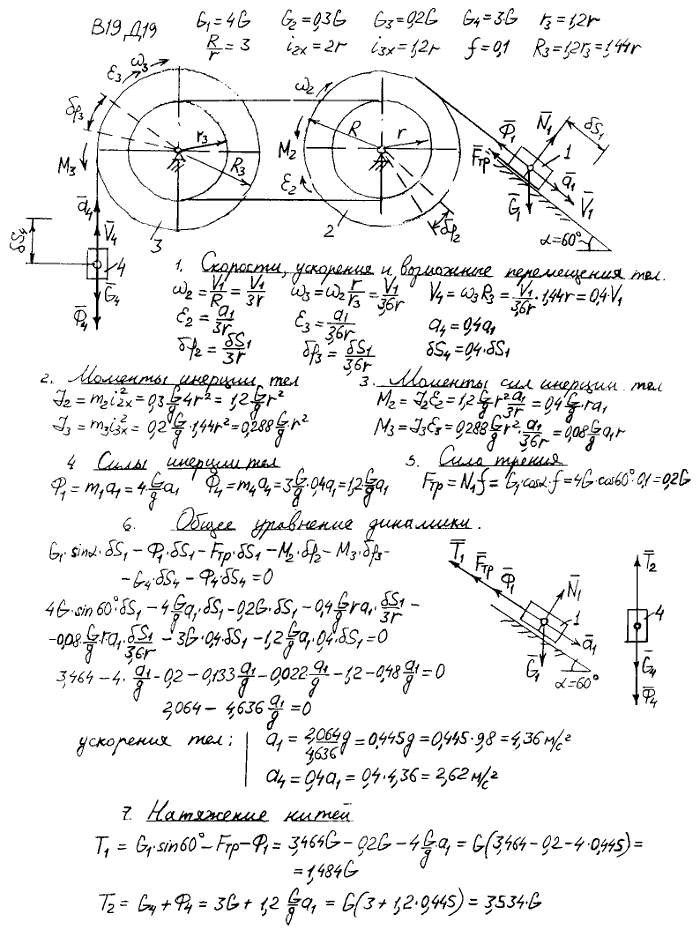 В19 Д19
G₁ = 4G   G₂ = 0,3G   G₃ = 0,2G   G₄ = 3G   r₃ = 1,2r
R/r = 3   i₂ₓ = 2r   i₃ₓ = 1,2r   f = 0,1   R₃ = 1,2r₃ = 1,44r
ω₃
ε₃
δφ₃
M₃
r₃
R₃
3
ω₂
M₂
ε₂
R
r
2
δφ₂
Φ̄₁
F̄тр
N̄₁
δS₁
1
Ḡ₁
ā₁
V̄₁
α=60°
ā₄
V̄₄
δS₄
4
Ḡ₄
Φ̄₄
1. Скорости, ускорения и возможные перемещения тел.
ω₂ = V₁/R = V₁/3r   ω₃ = ω₂ r/r₃ = V₁/3,6r   V₄ = ω₃R₃ = V₁/3,6r · 1,44r = 0,4·V₁
ε₂ = a₁/3r   ε₃ = a₁/3,6r   a₄ = 0,4a₁
δφ₂ = δS₁/3r   δφ₃ = δS₁/3,6r   δS₄ = 0,4·δS₁
2. Моменты инерции тел   3. Моменты сил инерции тел
J₂ = m₂i₂ₓ² = 0,3 G/g 4r² = 1,2 G/g r²   M₂ = J₂ε₂ = 1,2 G/g r² a₁/3r = 0,4 G/g · ra₁
J₃ = m₃i₃ₓ² = 0,2 G/g · 1,44r² = 0,288 G/g · r²   M₃ = J₃ε₃ = 0,288 G/g r² · a₁/3,6r = 0,08 G/g a₁r
4 Силы инерции тел   5. Сила трения
Φ₁ = m₁a₁ = 4· G/g a₁   Φ₄ = m₄a₄ = 3 G/g · 0,4a₁ = 1,2 G/g a₁   Fтр = N₁f = G₁·cosα·f = 4G·cos60°·0,1 = 0,2G
6. Общее уравнение динамики.
G₁·sinα·δS₁ − Φ₁·δS₁ − Fтр·δS₁ − M₂·δφ₂ − M₃·δφ₃ −
− G₄·δS₄ − Φ₄·δS₄ = 0
4G·sin60°·δS₁ − 4 G/g a₁·δS₁ − 0,2G·δS₁ − 0,4 G/g ra₁· δS₁/3r −
− 0,08 G/g · ra₁· δS₁/3,6r − 3G·0,4·δS₁ − 1,2 G/g a₁·0,4·δS₁ = 0
3,464 − 4· a₁/g − 0,2 − 0,133 a₁/g − 0,022 a₁/g − 1,2 − 0,48 a₁/g = 0
2,064 − 4,636 a₁/g = 0
T̄₁
F̄тр
Φ̄₁
N̄₁
1
ā₁
Ḡ₁
α=60°
T̄₂
4
Ḡ₄
Φ̄₄
ускорения тел:   a₁ = 2,064/4,636 g = 0,445g = 0,445·9,8 = 4,36 м/с²
a₄ = 0,4a₁ = 0,4·4,36 = 2,62 м/с²
7. Натяжение нитей
T₁ = G₁·sin60° − Fтр − Φ₁ = 3,464G − 0,2G − 4 G/g a₁ = G(3,464 − 0,2 − 4·0,445) =
= 1,484G
T₂ = G₄ + Φ₄ = 3G + 1,2 G/g a₁ = G(3 + 1,2·0,445) = 3,534·G